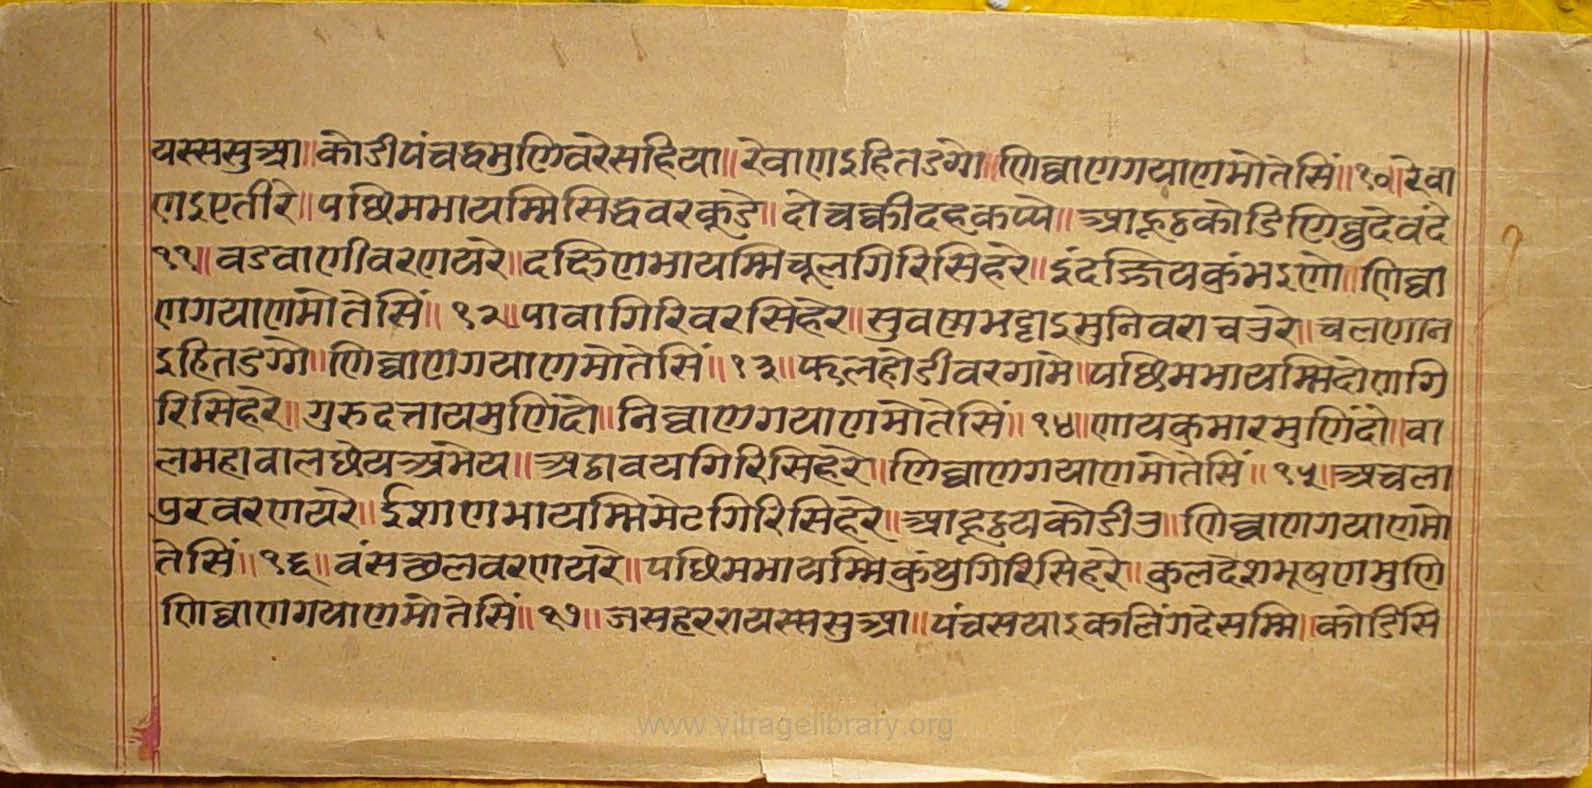 यस्ससुआ॥कोडीपंचद्धमुणिवरेसहिया॥रेवाणइहितडग्गे॥णिव्वाणगयाणमोतेसिं॥१०॥रेवा
णइएतीरे॥पछिमभायम्मिसिद्धवरकूडे॥दोचक्कीदहकप्पे॥आहूठकोडिणिव्वुदेवंदे
११॥वडवाणीवरणयरे॥दक्षिणभायम्मिचूलगिरिसिहरे॥इंदजियकुंभइणो॥णिव्वा
णगयाणमोतेसिं॥१२॥पावागिरिवरसिहरे॥सुवणभद्दाइमुनिवराचउरे॥चलणान
इहितडग्गे॥णिव्वाणगयाणमोतेसिं॥१३॥फलहोडीवरगामे॥पछिमभायम्मिदोणगि
रिसिहरे॥गुरुदत्तायमुणिंदो॥निव्वाणगयाणमोतेसिं॥१४॥णायकुमारमुणिंदो॥वा
लमहावालछेयअभेय॥अट्ठावयगिरिसिहरे॥णिव्वाणगयाणमोतेसिं॥१५॥अचला
पुरवरणयरे॥ईशाणभायम्मिमेटगिरिसिहरे॥आहूठयकोडीउ॥णिव्वाणगयाणमो
तेसिं॥१६॥वंसत्थलवरणयरे॥पछिमभायम्मिकुंथुगिरिसिहरे॥कुलदेशभूषणमुणि
णिव्वाणगयाणमोतेसिं॥१७॥जसहररायस्ससुआ॥पंचसयाइकलिंगदेसम्मि॥कोडिसि
www.vitragelibrary.org